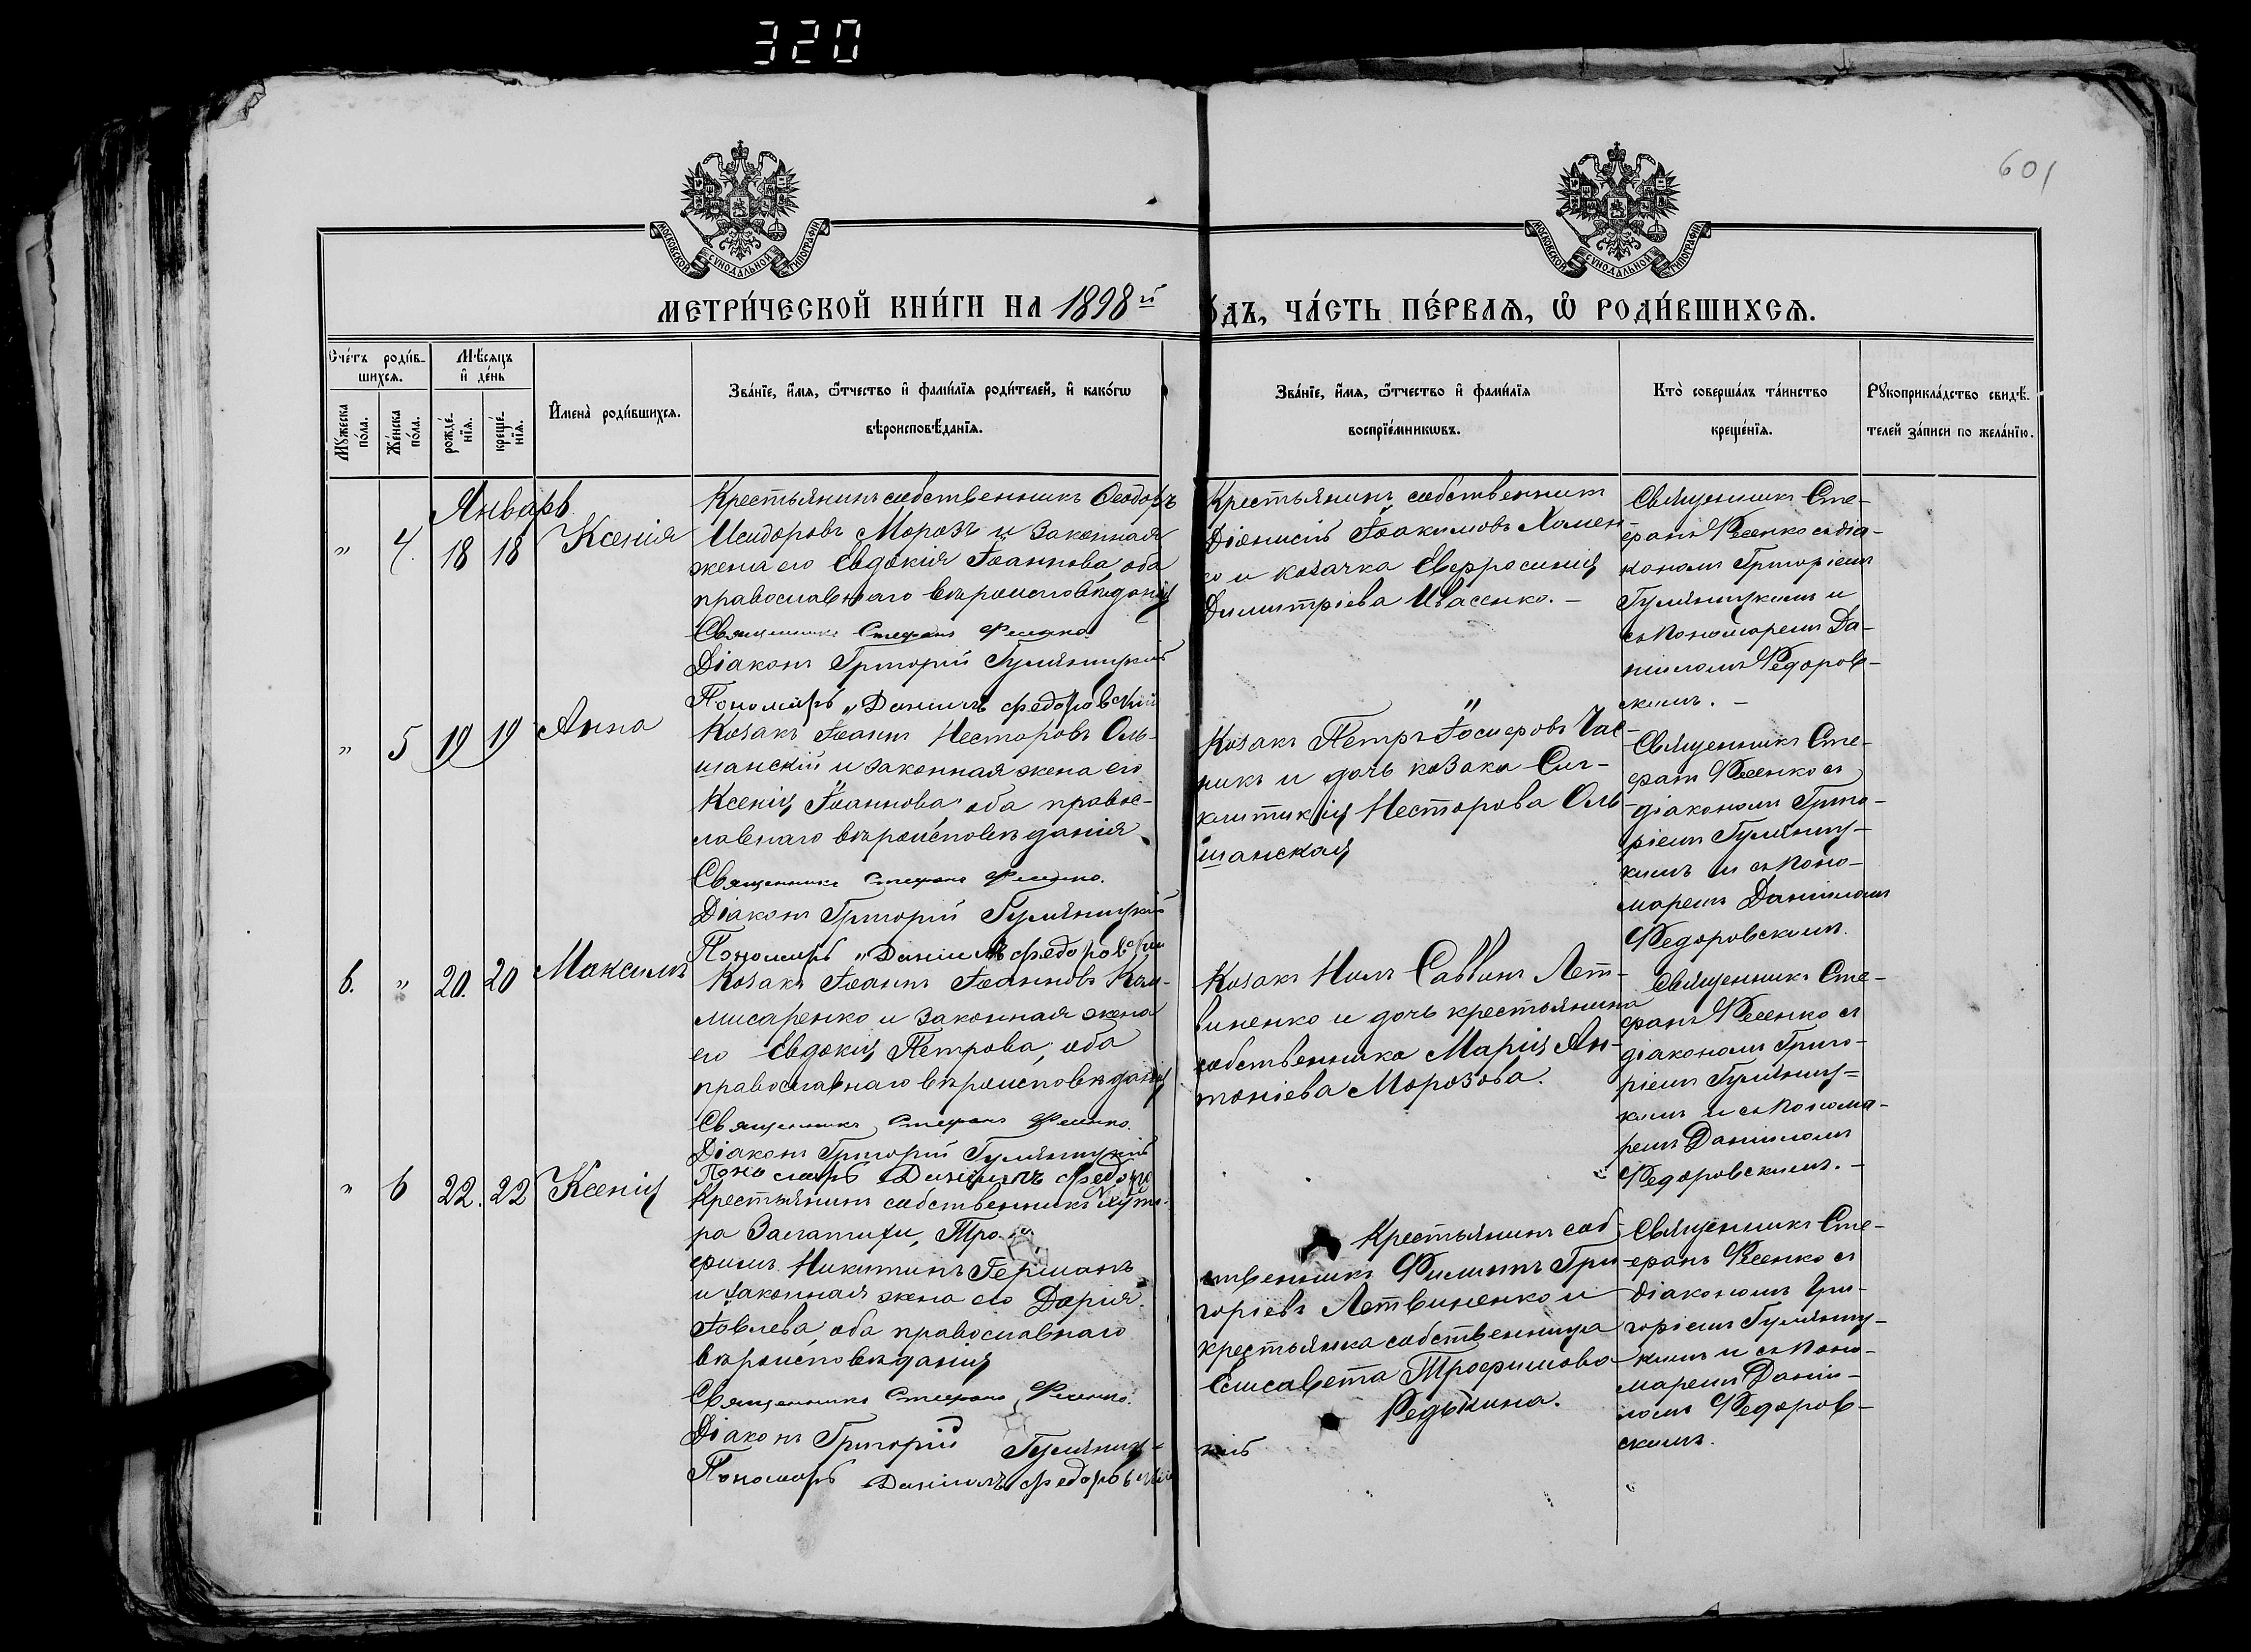 320
601
МОСКОВСКОЙ СѴНОДАЛЬНОЙ ТИПОГРАФІИ
МОСКОВСКОЙ СѴНОДАЛЬНОЙ ТИПОГРАФІИ
МЕТРИ́ЧЕСКОЙ КНИ́ГИ НА 1898й
ѓ́дъ, ЧА́СТЬ ПЕ́РВАѦ, Ѡ҆ РОДИ́ВШИХСѦ.
Сче́тъ роди́в-
шихсѧ.
Мѣ́сѧцъ
и҆ де́нь
Мꙋ́жеска
по́ла.
Же́нска
по́ла.
рожде́-
нїѧ.
креще́-
нїѧ.
И҆мена̀ роди́вшихсѧ.
Зва́нїе, и҆́мѧ, ѻ҆́тчество и҆ фами́лїѧ роди́телей, и҆ како́гѡ
вѣроисповѣ́данїѧ.
Зва́нїе, и҆́мѧ, ѻ҆́тчество и҆ фами́лїѧ
воспрїе́мникѡвъ.
Кто̀ соверша́лъ та́инство
креще́нїѧ.
Рꙋкоприкла́дство свидѣ́-
телей за́писи по жела́нїю.
Январь
" 4. 18 18 Ксенія
Крестьянинъ собственникъ Ѳеодоръ
Исидоровъ Морозъ и законная
жена его Евдокія Іоаннова, оба
православнаго вѣроисповѣданія
Священникъ Стефанъ Фесенко.
Діаконъ Григорій Гуляницкій
Пономарь Даніилъ Федоровскій
Крестьянинъ собственникъ
Діонисій Іоакимовъ Хомен-
ко и козачка Евфросинія
Димитріева Ивасенко. –
Священникъ Сте-
фанъ Фесенко съ діа-
кономъ Григоріемъ
Гуляницкимъ и
съ Пономаремъ Да-
ніиломъ Федоров-
скимъ. –
" 5 19 19 Анна
Козакъ Іоаннъ Несторовъ Оль-
шанскій и законная жена его
Ксенія Іоаннова оба правос-
лавнаго вѣроисповѣданія
Священникъ Стефанъ Фесенко.
Діаконъ Григорій Гуляницкій
Пономарь Даніилъ Федоровскій
Козакъ Петръ Іосифовъ Час-
никъ и дочь козака Син-
клитикія Несторова Оль-
шанская
Священникъ Сте-
фанъ Фесенко съ
діакономъ Григо-
ріемъ Гуляниц-
кимъ и съ Поно-
маремъ Даніиломъ
Федоровскимъ.
6. " 20. 20 Максимъ
Козакъ Іоаннъ Іоанновъ Ком-
мисаренко и законная жена
его Евдокія Петрова, оба
православнаго вѣроисповѣданія
Священникъ Стефанъ Фесенко.
Діаконъ Григорій Гуляницкій
Пономарь Даніилъ Федоро
Козакъ Нилъ Саввинъ Лет-
виненко и дочь крестьянина
собственника Марія Ан-
тоніева Морозова.
Священникъ Сте-
фанъ Фесенко съ
діакономъ Григо-
ріемъ Гуляниц-
кимъ и съ Понома-
ремъ Даніиломъ
Федоровскимъ. –
" 6 22. 22 Ксенія
Крестьянинъ собственникъ Хуто-
ра Залатихи, Тро-
фимъ Никитинъ Германъ
и законная жена его Дарія
Іовлева, оба православнаго
вѣроисповѣданія
Священникъ Стефанъ Фесенко.
Діаконъ Григорій Гуляниц-
кій
Пономарь Даніилъ Федоровскій
Крестьянинъ соб-
ственникъ Филиппъ Гри-
горіевъ Летвиненко и
крестьянка собственница
Елисавета Трофимова
Редькина.
Священникъ Сте-
фанъ Фесенко съ
діакономъ Гри-
горіемъ Гуляниц-
кимъ и съ Поно-
маремъ Даніи-
ломъ Федоров-
скимъ.